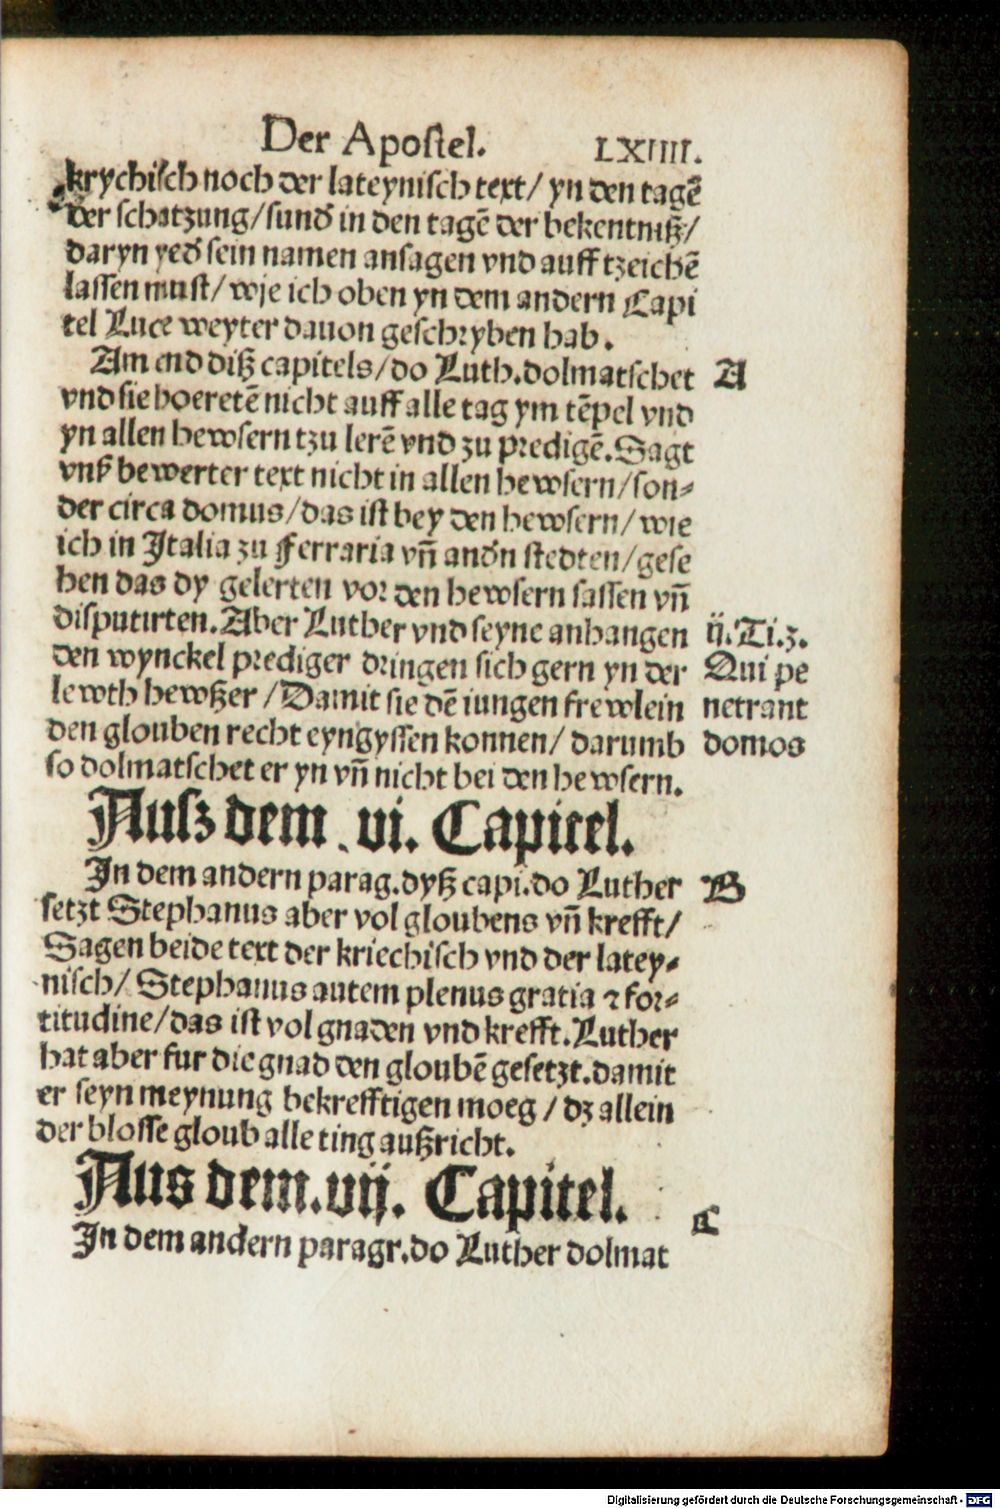 Der Apostel. LXIIII.
krychisch noch der lateynisch text/ yn den tagē
der schatzung/sunđ in den tagē der bekentniß/
daryn yeđ sein namen ansagen vnd auff tzeichē
lassen must/ wie ich oben yn dem andern Capi
tel Luce weyter dauon geschryben hab.
Am end diß capitels/do Luth.dolmatschet A
vnd sie hoeretē nicht auff alle tag ym tēpel vnd
yn allen hewsern tzu lerē vnd zu predigē. Sagt
vnß bewerter text nicht in allen hewsern/son⸗
der circa domus/das ist bey den hewsern/wie
ich in Italia zu Ferraria vñ anđn stedten/gese
hen das dy gelerten vor den hewsern sassen vñ
disputirten. Aber Luther vnd seyne anhangen ij.Ti.3.
den wynckel prediger dringen sich gern yn der Qui pe
lewth hewßer/Damit sie dē iungen frewlein netrant
den glouben recht eyngyssen konnen/ darumb domos
so dolmatschet er yn vñ nicht bei den hewsern.
Ausz dem .vi. Capitel.
In dem andern parag.dyß capi.do Luther B
setzt Stephanus aber vol gloubens vñ krefft/
Sagen beide text der kriechisch vnd der latey⸗
nisch/ Stephanus autem plenus gratia ⁊ for⸗
titudine/das ist vol gnaden vnd krefft.Luther
hat aber fur die gnad den gloubē gesetzt.damit
er seyn meynung bekrefftigen moeg/dz allein
der blosse gloub alle ting außricht.
Aus dem.vij. Capitel.
C
In dem andern paragr.do Luther dolmat
Digitalisierung gefördert durch die Deutsche Forschungsgemeinschaft - DFG